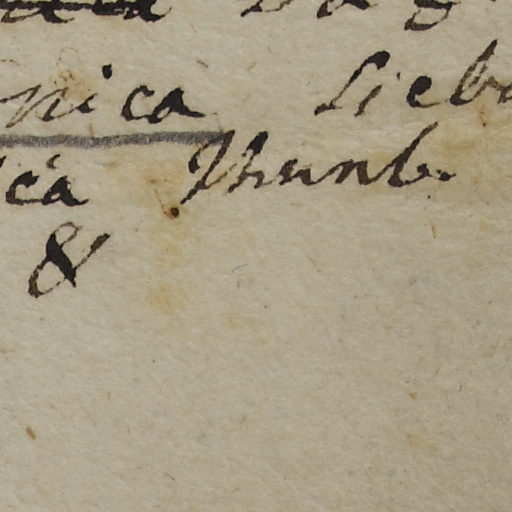 nica Sieb
ica Thunb.
&